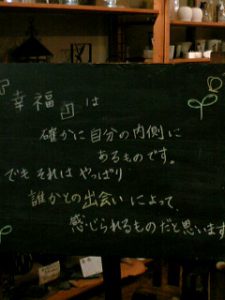 幸福 は
確かに自分の内側に
あるものです。
でもそれはやっぱり
誰かとの出会いによって、
感じられるものだと思います